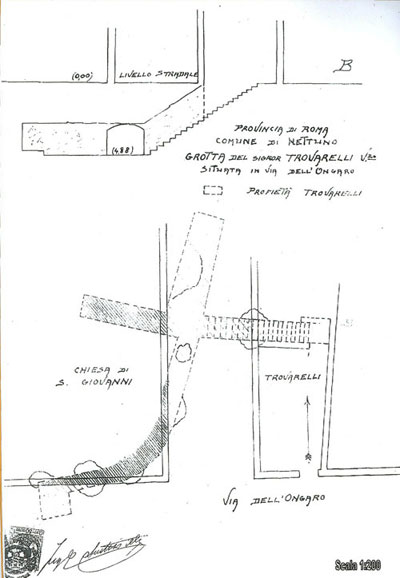 B
(0,00) LIVELLO STRADALE
(4.88)
PROVINCIA DI ROMA
COMUNE DI NETTUNO
GROTTA DEL SIGNOR TROVARELLI
SITUATA IN VIA DELL'ONGARO
PROPIETÀ TROVARELLI
CHIESA DI
S. GIOVANNI
TROVARELLI
VIA DELL'ONGARO
Scala 1:200